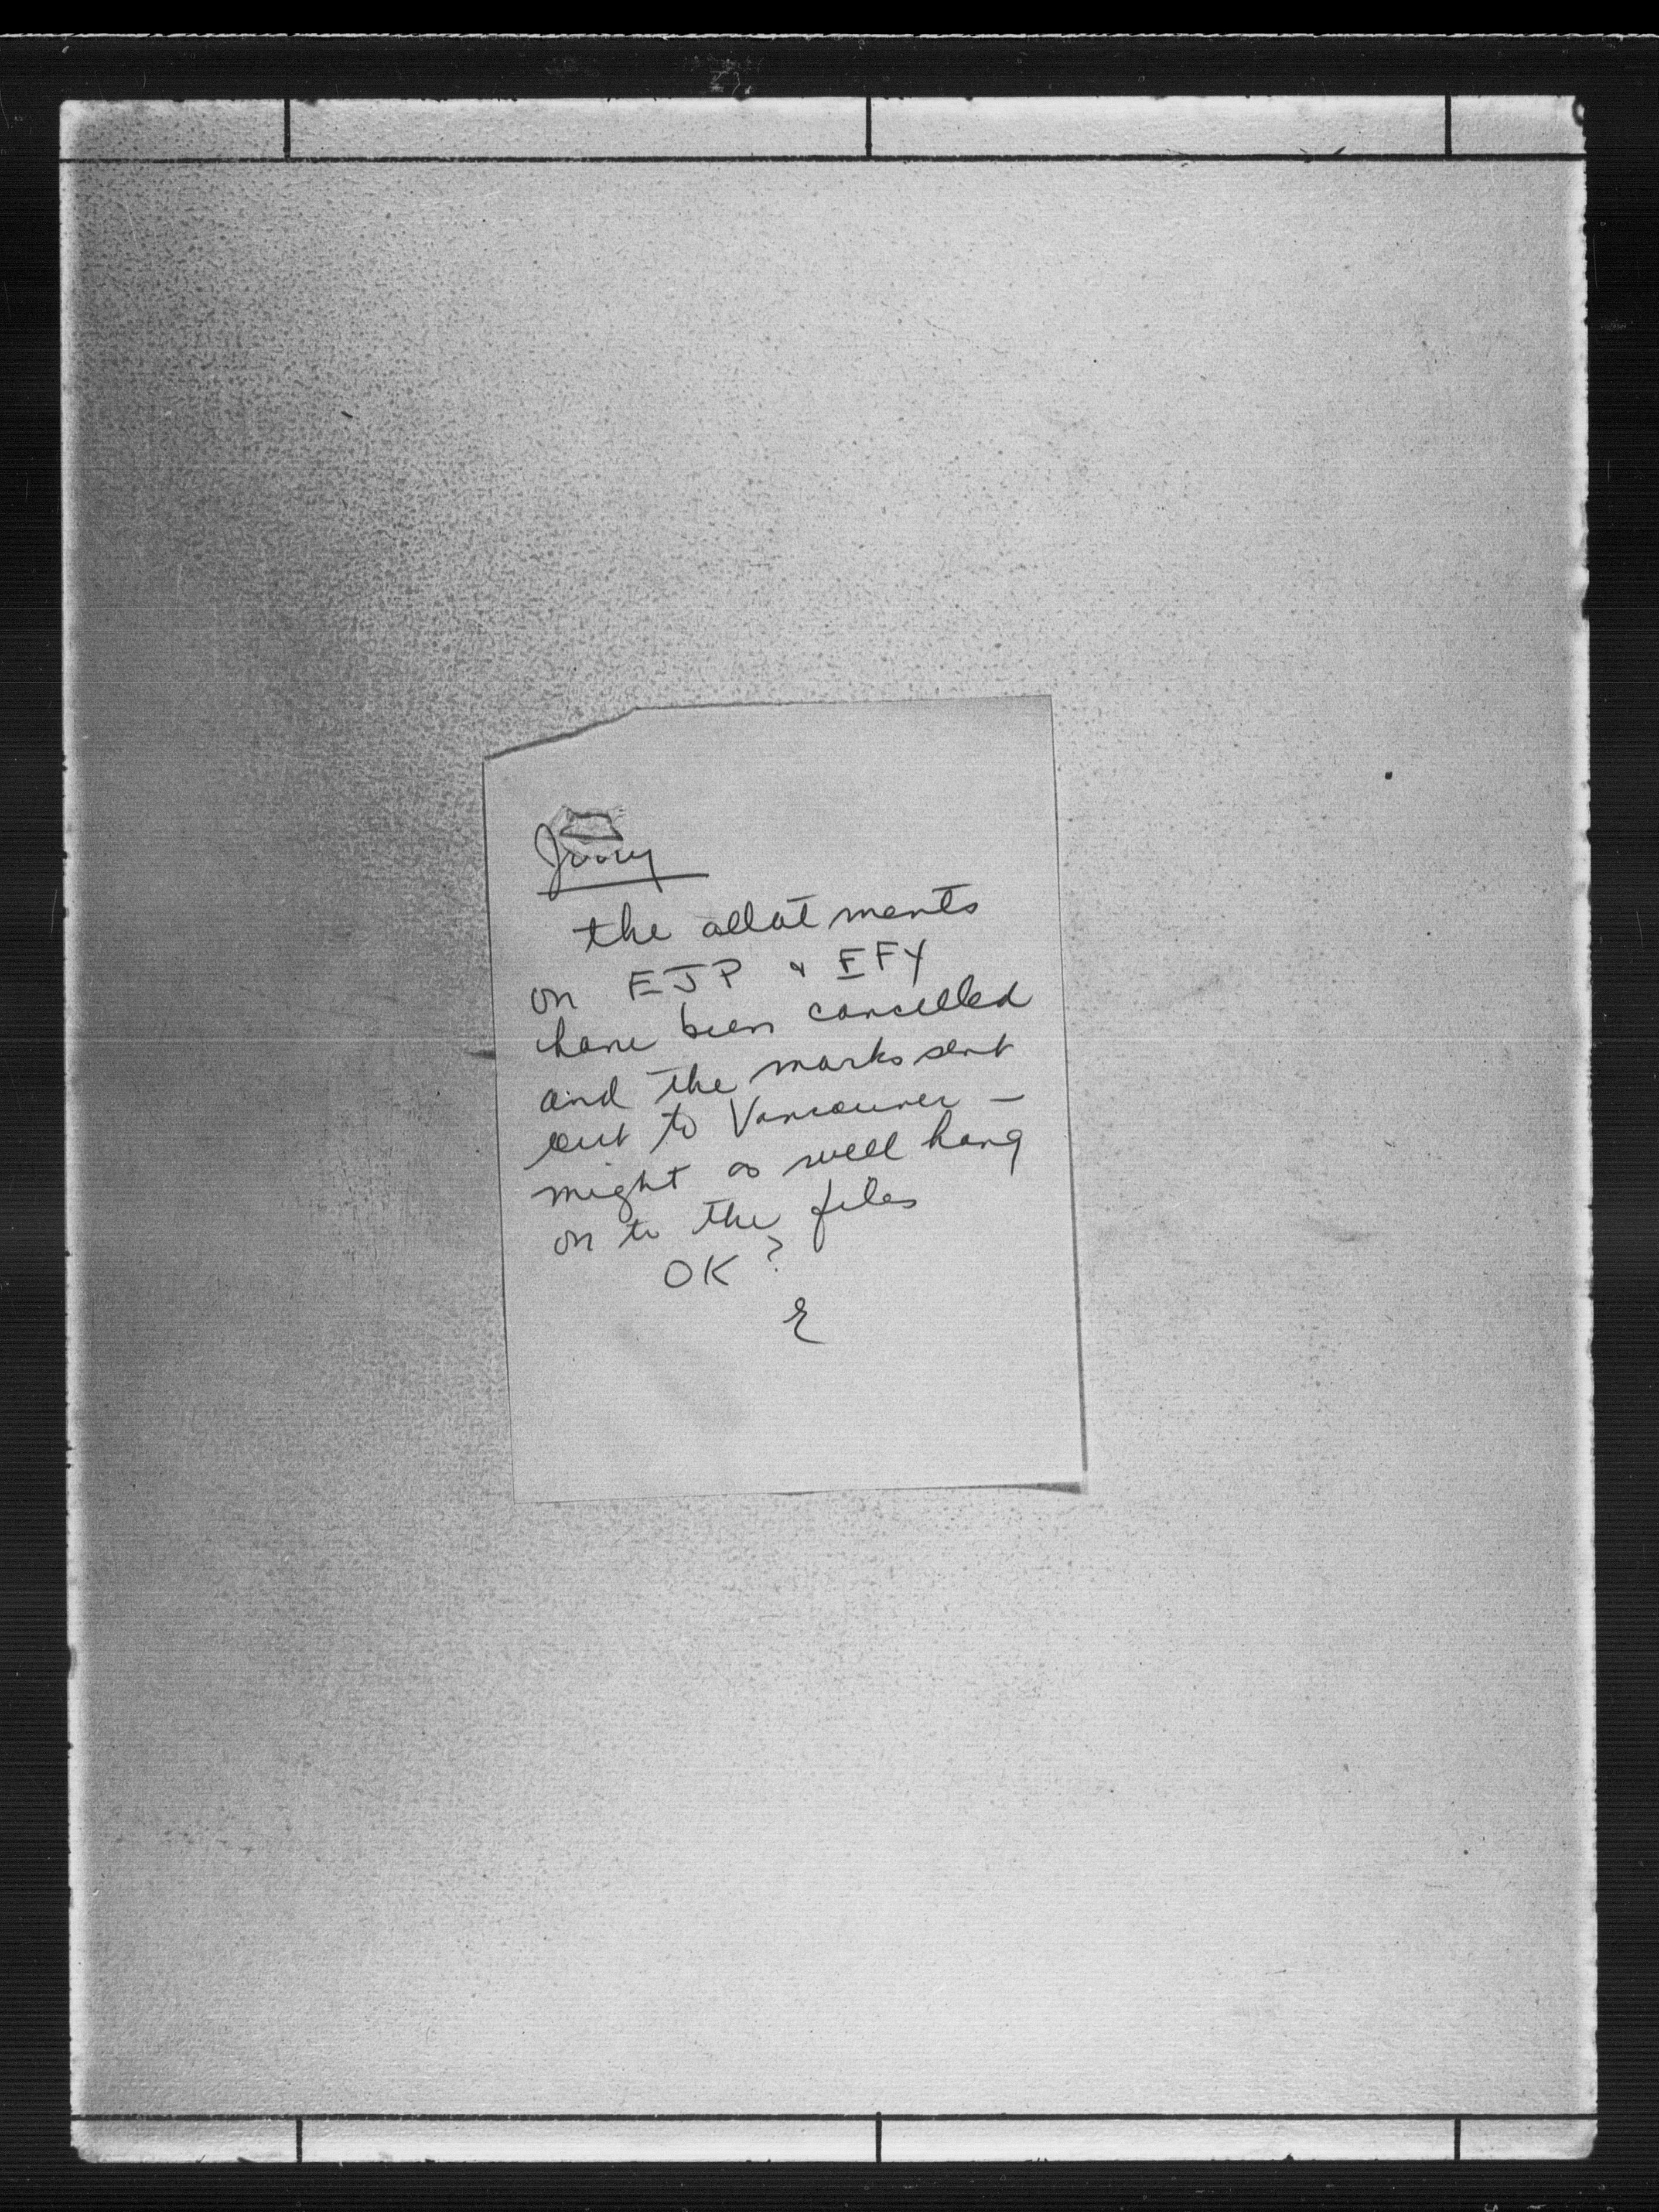 the allotments
on FJP & FFY
have been cancelled
and the marks sent
out to Vancouver –
might as well hang
on to the files
OK?
E